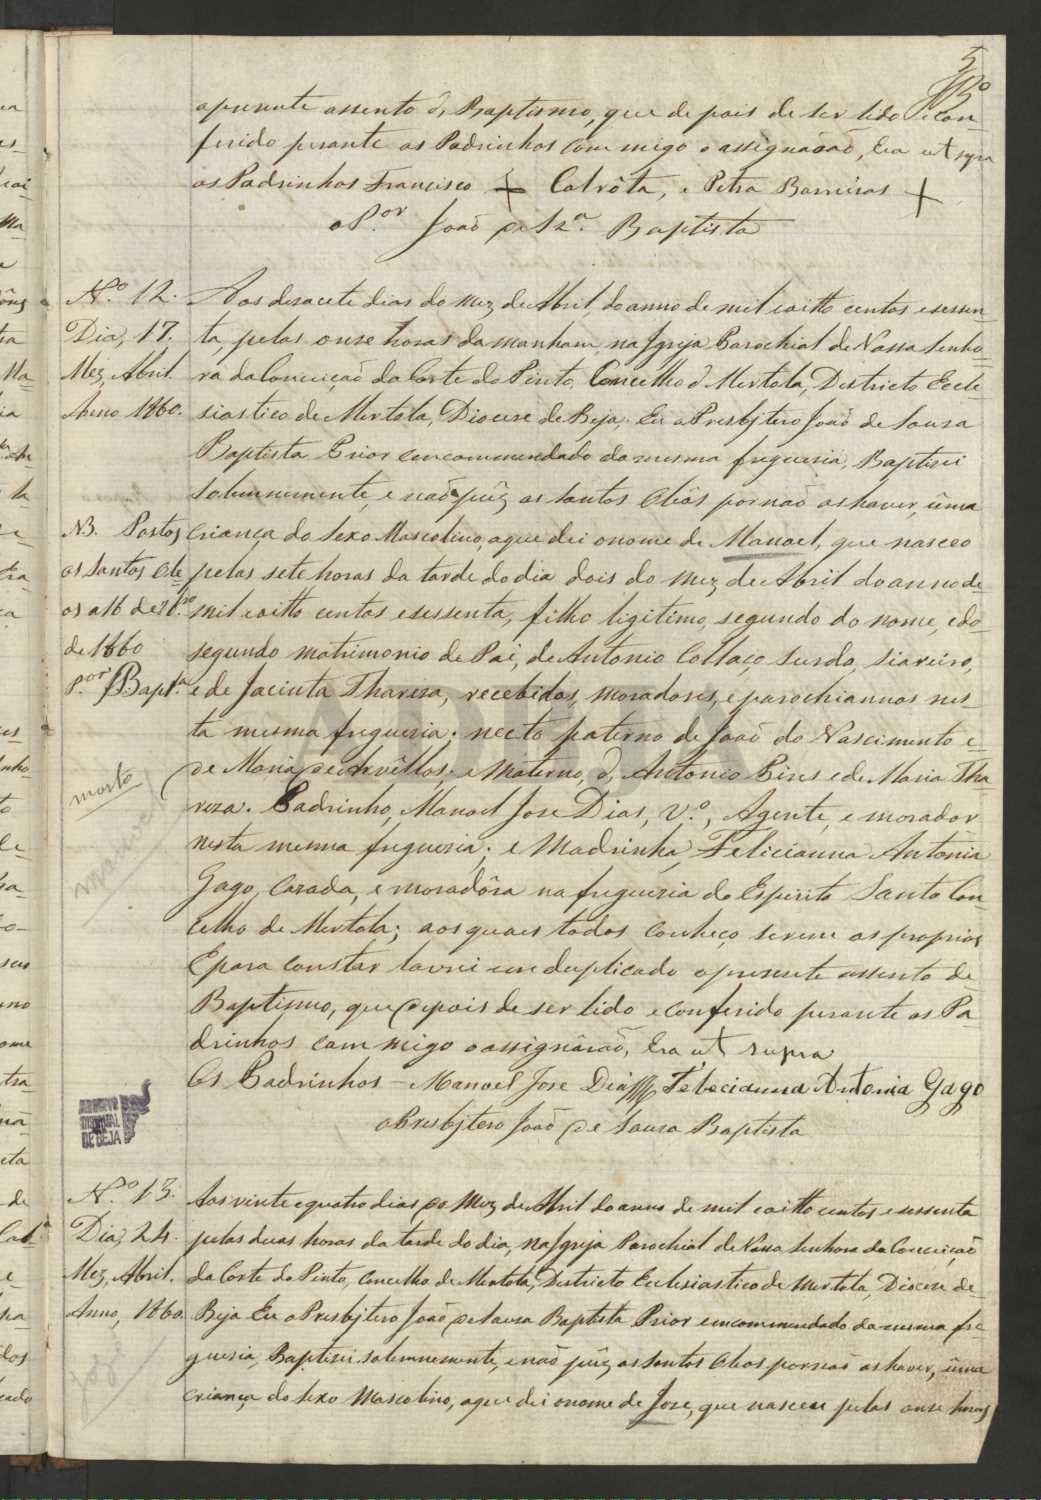 5
apresente assento d, Baptismo, que de pois de ser lido e con-
ferido perante os Padrinhos com migo o assignarão, Era ut supra
os Padrinhos Francisco + Colrôta, e Petra Barreiros +
o P.or João de Sz.a Baptista
N.o 12.
Dia, 17.
Mez, Abril.
Anno 1860.
Aos desacete dias do mez de Abril, do anno de mil e oitto centos e sessen-
ta, pelas onse horas da manham, na Igreja Parochial de Nossa Senho-
ra da Conceição da Corte do Pinto, Concelho d Mertola, Destricto Eccle-
siastico de Mertola, Diocese de Beja. Eu o Presbytero João de Sousa
Baptista Prior emcommendado da mesma freguesia, Baptisei
Solemnemente, e não puz os Santos Olios por não os haver, uma
criança do Sexo Mascolino, a que dei o nome de Manoel, que nasceo
pelas sete horas da tarde do dia dois do mez de Abril do anno de
mil e oitto centos e sessenta, filho legitimo, segundo do nome, e do
segundo matrimonio de Pai, de Antonio Collaço Surdo, Siareiro,
e de Jacinta Thareza, recebidos, moradores, e parochiannos nes-
ta mesma freguesia; neeto paterno de João do Nascimento e
de Maria de Arvillos; e materno, d, Antonio Pires e de Maria Tha
reza. Padrinho, Manoel Jose Dias, V.o, Agente, e morador
nesta mesma freguesia; e Madrinha, Felicianna Antonia
Gago, Casada, e moradôra na freguesia do Espirito Santo Con-
celho de Mertola; aos quaes todos conheço serem os proprios
E para constar lavrei em duplicado o presente assento de
Baptismo, que depois de ser lido e conferido perante os Pa
drinhos com migo o assignárão, Era ut supra
Os Padrinhos - Manoel Jose Dias Felecianna Antonia Gago
o Presbytero João de Sousa Baptista
NB. Postos
os Santos Ole-
os a 16 de
de 1860
P.or J Bapt.a
morto
Manoel
ARQUIVO DISTRITAL DE BEJA
N.o 13.
Dia, 24.
Mez, Abril.
Anno, 1860.
José
Aos vinte e quatro dias do Mez de Abril do anno de mil e oitto centos e sessenta
pelas duas horas da tarde do dia, na Igreja Parochial de Nossa Senhora da Conceição
da Corte do Pinto, Concelho de Mertola, Destricto Ecclesiastico de Mertola, Diocese de
Beja Eu o Presbytero João de Sousa Baptista Prior emcommendado da mesma fre
guesia, Baptisei solemnemente, e não puz os Santos Olios por não os haver, uma
criança do Sexo Mascolino, a que dei o nome de Jose, que nasceu pelas onse horas